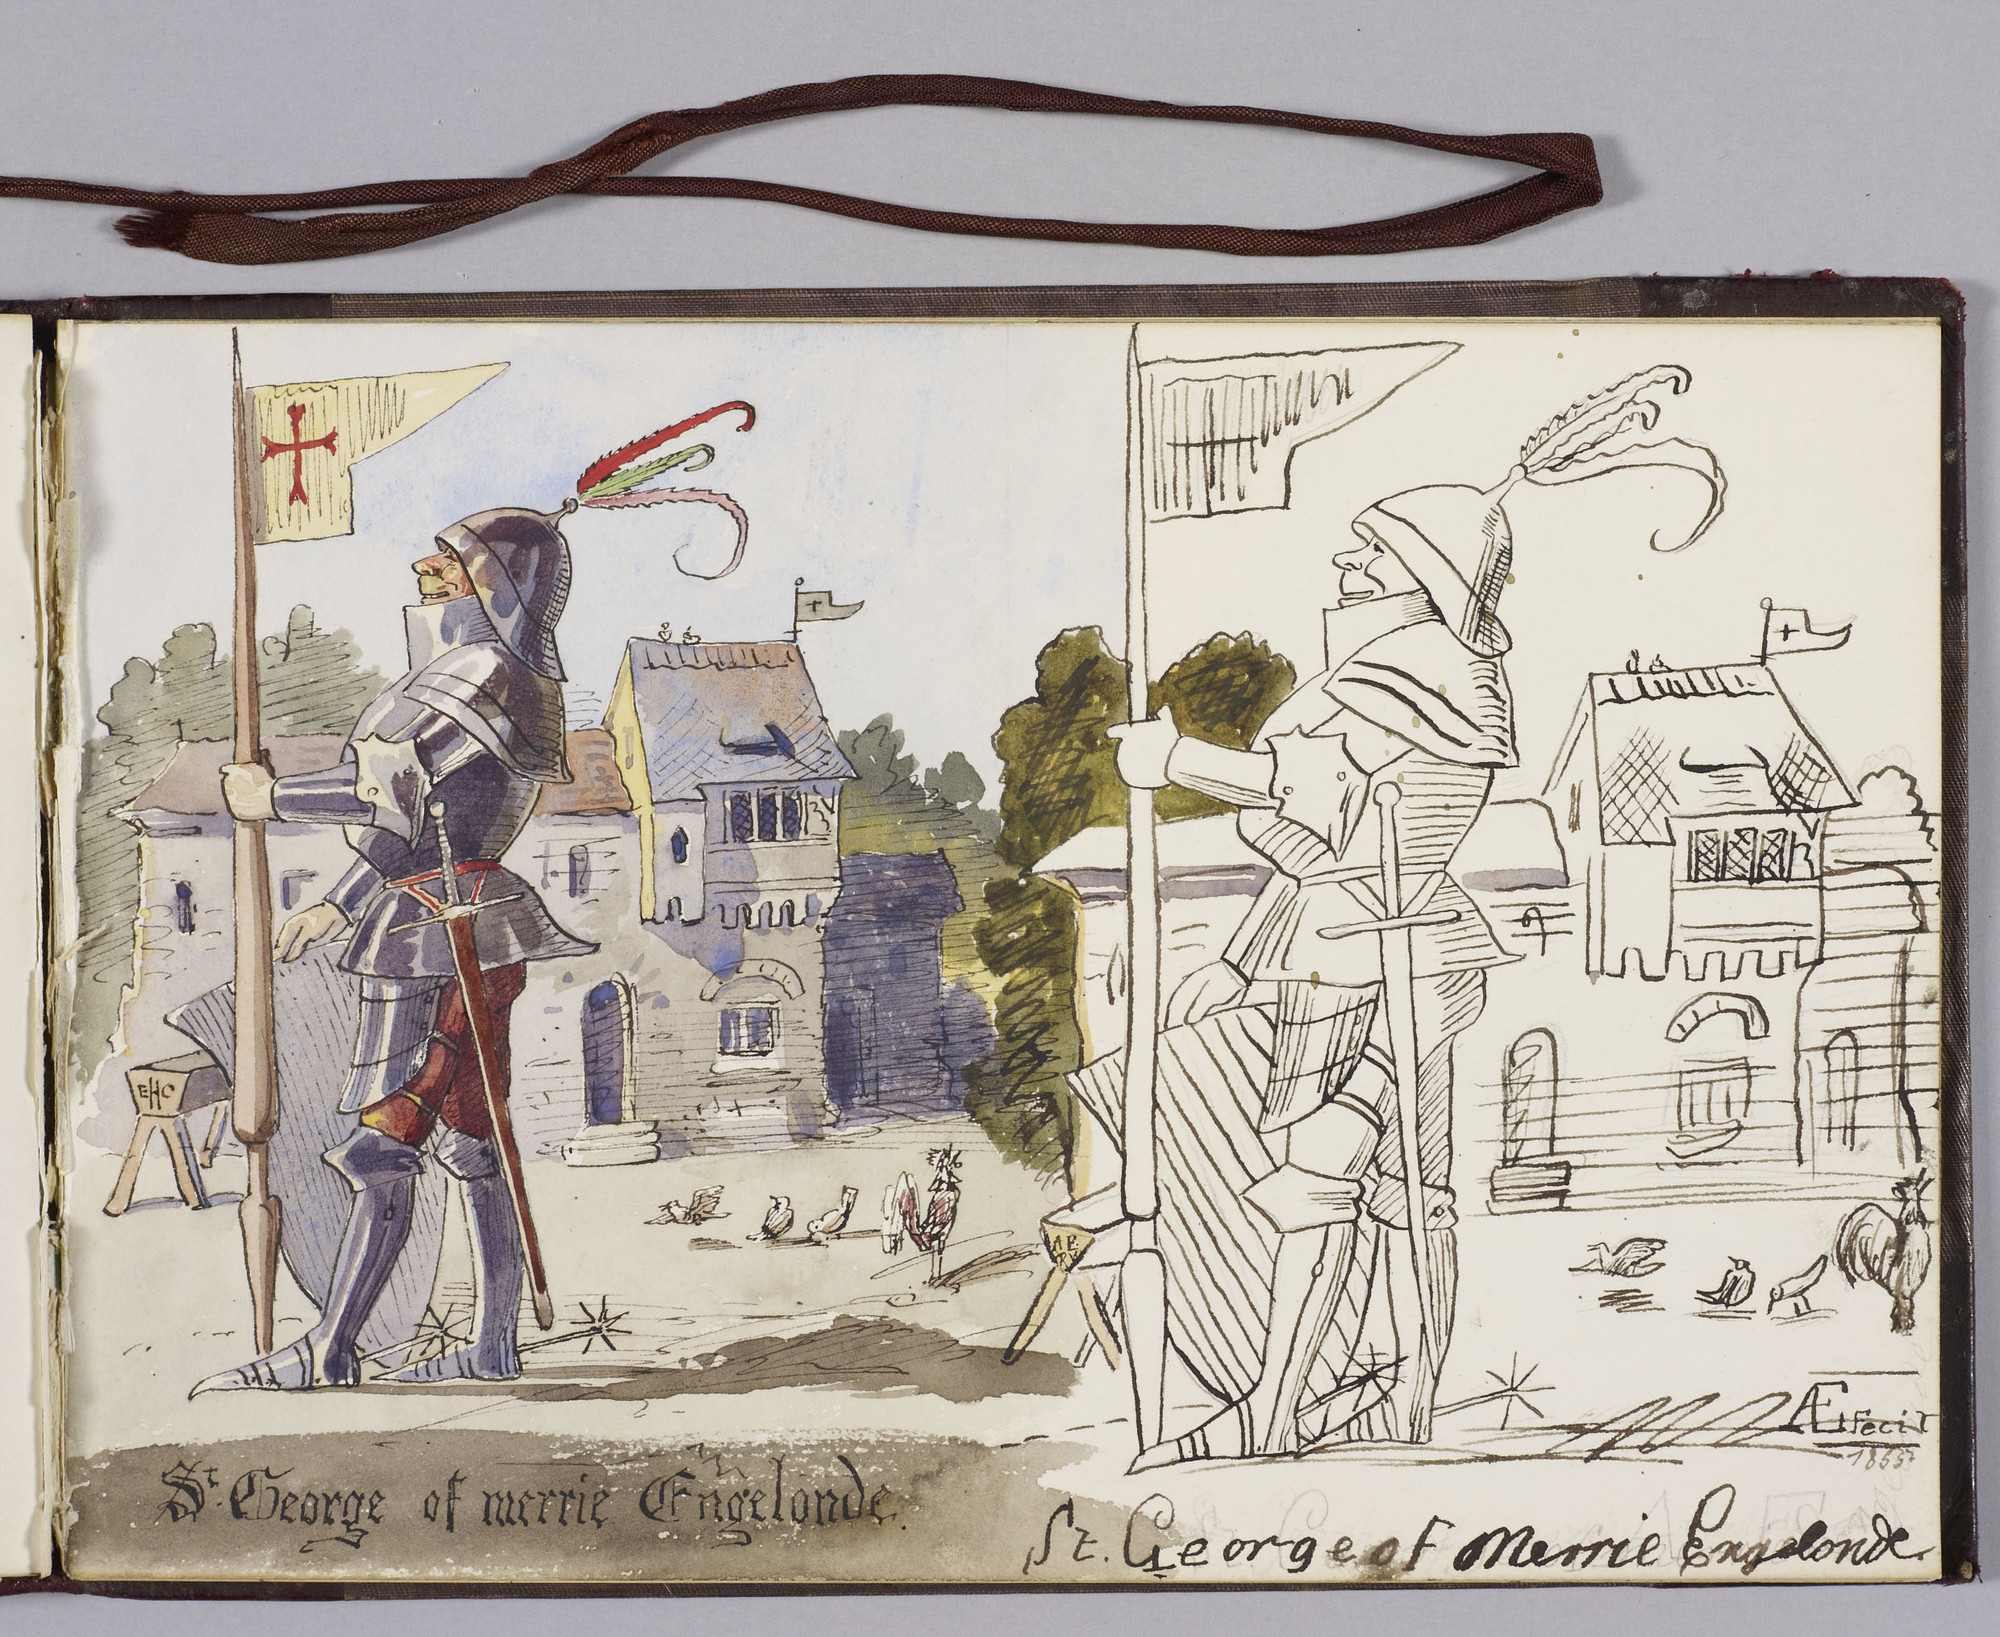 EHC
St. George of merrie Engelonde.
Æ fecit
St. George of Merrie Engelonde.